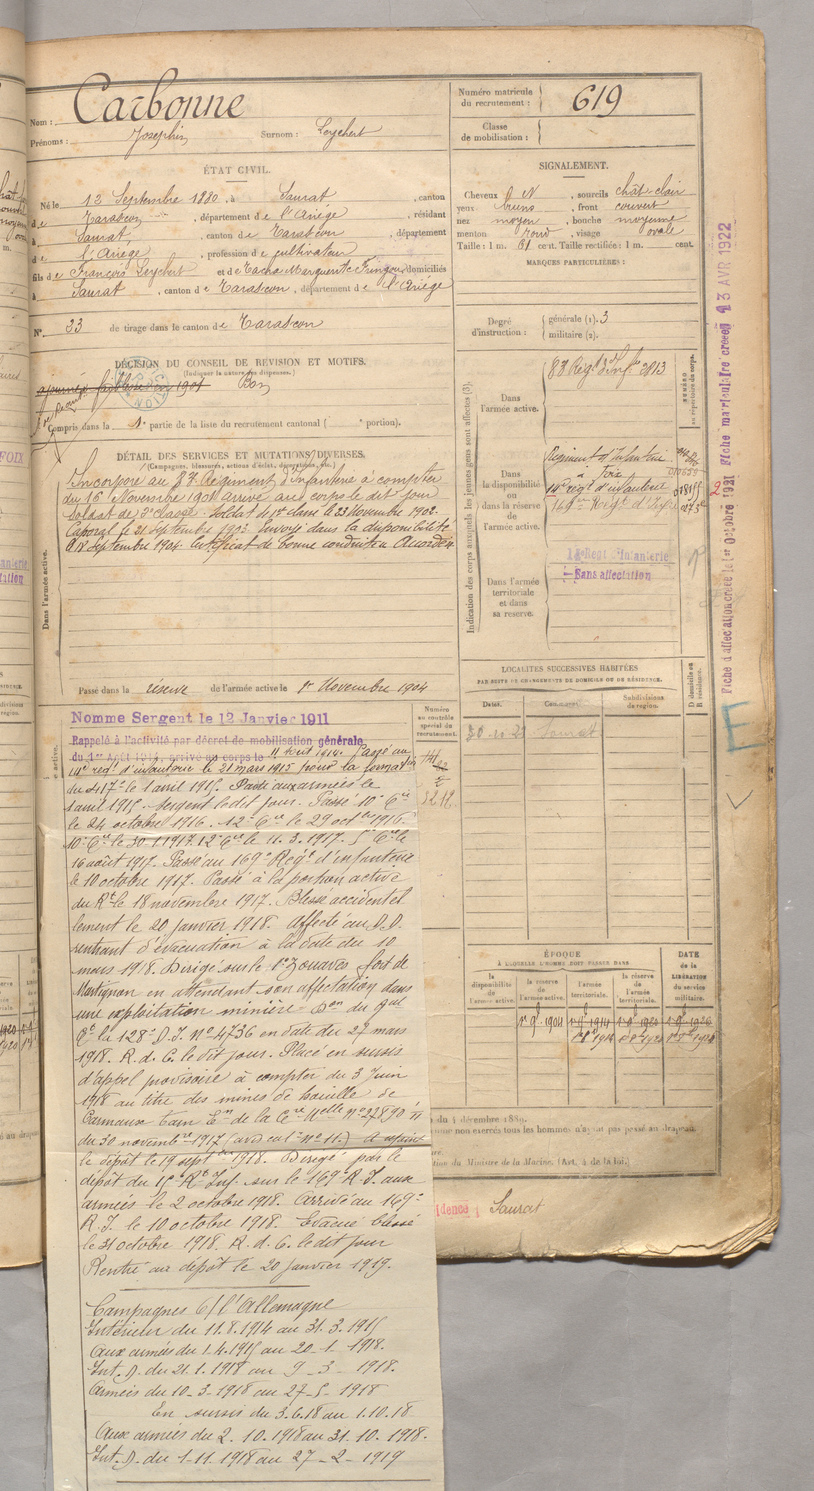 Nom : Carbonne
Prénoms : Joseph Surnom : Leychert
ÉTAT CIVIL.
Né le 12 Septembre 1880, à Saurat, canton
de Tarascon, département de l'Ariège, résidant
à Saurat, canton de Tarascon, département
de l'Ariège, profession de cultivateur
fils de François Leychert et de Marguerite domiciliés
à Saurat, canton de Tarascon, département de l'Ariège
N° 33 de tirage dans le canton de Tarascon
DÉCISION DU CONSEIL DE RÉVISION ET MOTIFS.
(Indiquer la nature des dispenses.)
ajourné faiblesse en 1901 Bon
Compris dans la 1e partie de la liste du recrutement cantonal ( portion).
DÉTAIL DES SERVICES ET MUTATIONS DIVERSES.
(Campagnes, blessures, actions d'éclat, décorations, etc.)
Incorporé au Régiment d'Infanterie à compter
du 16 Novembre 1901 arrivé au corps le dit jour
Soldat de 2e classe. Soldat de 1re classe le 23 Novembre 1902.
Caporal le 21 Septembre 1903 Envoyé dans la disponibilité
Septembre 1904. Certificat de bonne conduite Accordé.
Dans l'armée active.
Passé dans la réserve de l'armée active le 1er Novembre 1904
Nommé Sergent le 12 Janvier 1911
Rappelé à l'activité par décret de mobilisation générale
du 1er Août 1914, arrivé au corps le 11 Août 1914. Passé au
14e régt d'infanterie le 21 mars 1915 pour la formation
du 417e le 1 avril 1915. Passé aux armées le
1 avril 1915. Sergent le dit jour. Passé 10e Cie
le 24 octobre 1916. 12e Cie le 29 octbre 1916.
10e Cie le 30.1.1917. 12e Cie le 11.3.1917. 5e Cie le
16 août 1917. Passé au 169e Régt d'infanterie
le 10 octobre 1917. Passé à la portion active
du Rt le 18 novembre 1917. Blessé accidentel
lement le 20 janvier 1918. Affecté au D.D.
rentrant d'évacuation à la date du 10
mars 1918. Dirigé sur le 1e Zouaves fort de
Martignon en attendant son affectation dans
une exploitation minière Don du Gal
Ct la 128e D.I. N° 4736 en date du 27 mars
1918. R. d. C. le dit jour. Placé en sursis
d'appel provisoire à compter du 3 Juin
1918 au titre des mines de houille de
Carmaux Tarn
du 30 novembre 1917 (avis N° 11.) A rejoint
le dépôt le 19 septbre 1918. Dirigé par le
dépôt du 15e Rt Inf. sur le 169e R.I. aux
armées le 2 octobre 1918. Arrivé au 169e
R.I. le 10 octobre 1918. Evacué blessé
le 31 octobre 1918. R. d. C. le dit jour
Rentré au dépôt le 20 janvier 1919.
Campagnes C/ l'Allemagne
Intérieur du 11.8.1914 au 31.3.1915
Aux armées du 1.4.1915 au 20-1-1918.
Int. D. du 21.1.1918 au 9-3-1918.
Armées du 10-3-1918 au 27-5-1918
En sursis du 3.6.18 au 1.10.18
Aux armées du 2.10.1918 au 31.10.1918.
Int. D. du 1-11-1918 au 27-2-1919
Numéro matricule
du recrutement : 619
Classe
de mobilisation :
SIGNALEMENT.
Cheveux N, sourcils chât clair
yeux bruns, front couvert
nez moyen, bouche moyenne
menton rond, visage ovale
Taille : 1 m. 61 cent. Taille rectifiée : 1 m. cent.
MARQUES PARTICULIÈRES :
Degré
d'instruction : générale (1). 3
militaire (2).
Indication des corps auxquels les jeunes gens sont affectés (3).
NUMÉRO
au répertoire du corps.
Dans
l'armée active.
Dans
la disponibilité
ou
dans la réserve
de
l'armée active.
Régiment d'Infanterie
à Foix
14e régt d'infanterie
Dans l'armée
territoriale
et dans
sa réserve.
Régt Infanterie
Sans affectation
LOCALITÉS SUCCESSIVES HABITÉES
PAR SUITE DE CHANGEMENTS DE DOMICILE OU DE RÉSIDENCE.
Dates.
Communes.
Subdivisions
de région.
D domicile ou
R résidence.
Saurat
Numéro
au contrôle
spécial du
recrutement.
ÉPOQUE
À LAQUELLE L'HOMME DOIT PASSER DANS
DATE
de la
LIBÉRATION
du service
militaire.
la
disponibilité
de
l'armée active.
la réserve
de
l'armée active.
l'armée
territoriale.
la réserve
de
l'armée
territoriale.
1e 9b 1904
du 4 décembre 1889.
non exercés tous les hommes n'ayant pas passé au drapeau.
du Ministre de la Marine. (Art. 4 de la loi.)
idence : Saurat
Fiche d'affectation créée le 1er Octobre 1921 Fiche matriculaire créée 13 AVR 1922